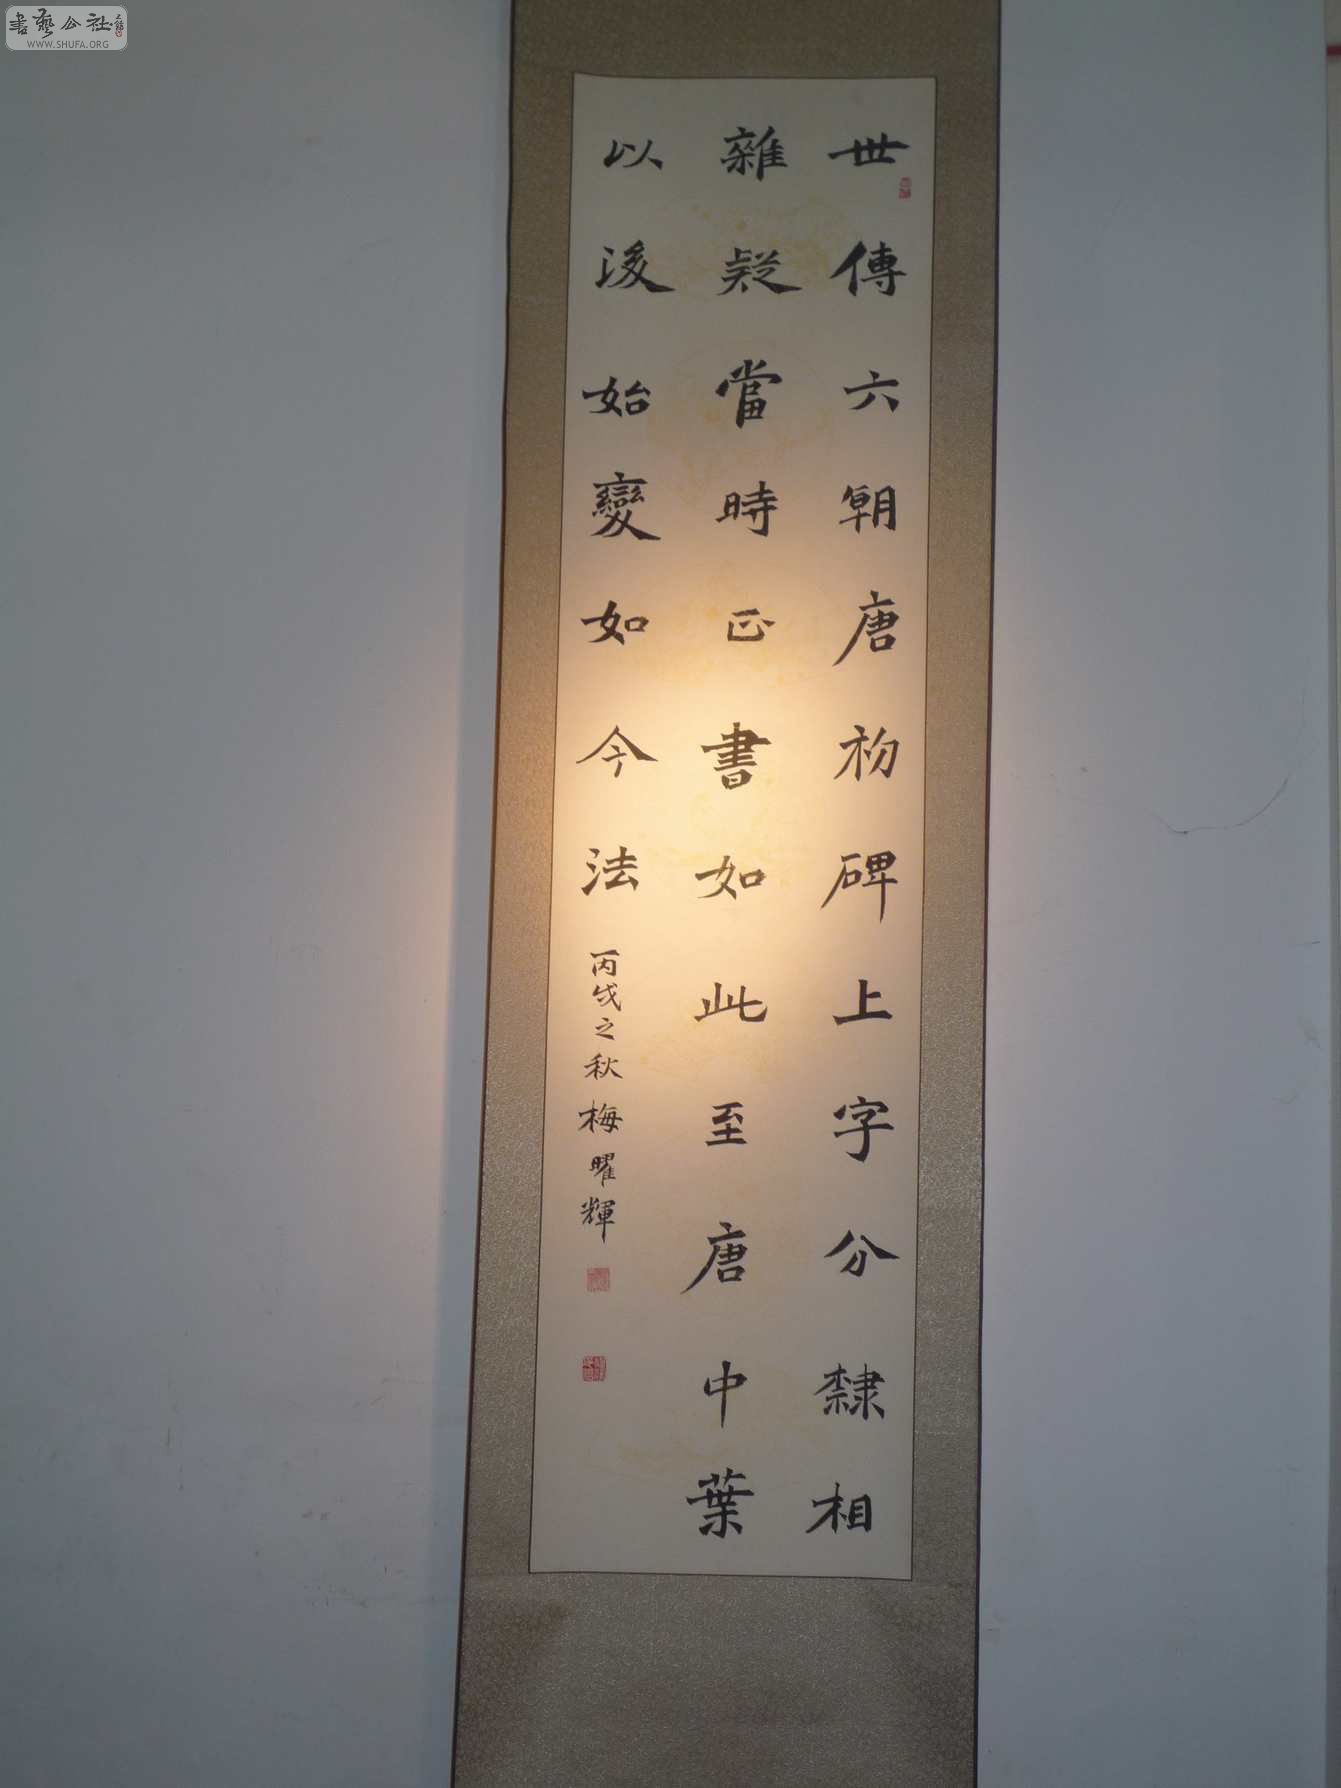 世傳六朝唐初碑上字分隸相
雜疑當時正書如此至唐中葉
以後始變如今法
丙戌之秋梅曜輝
書藝公社
WWW.SHUFA.ORG